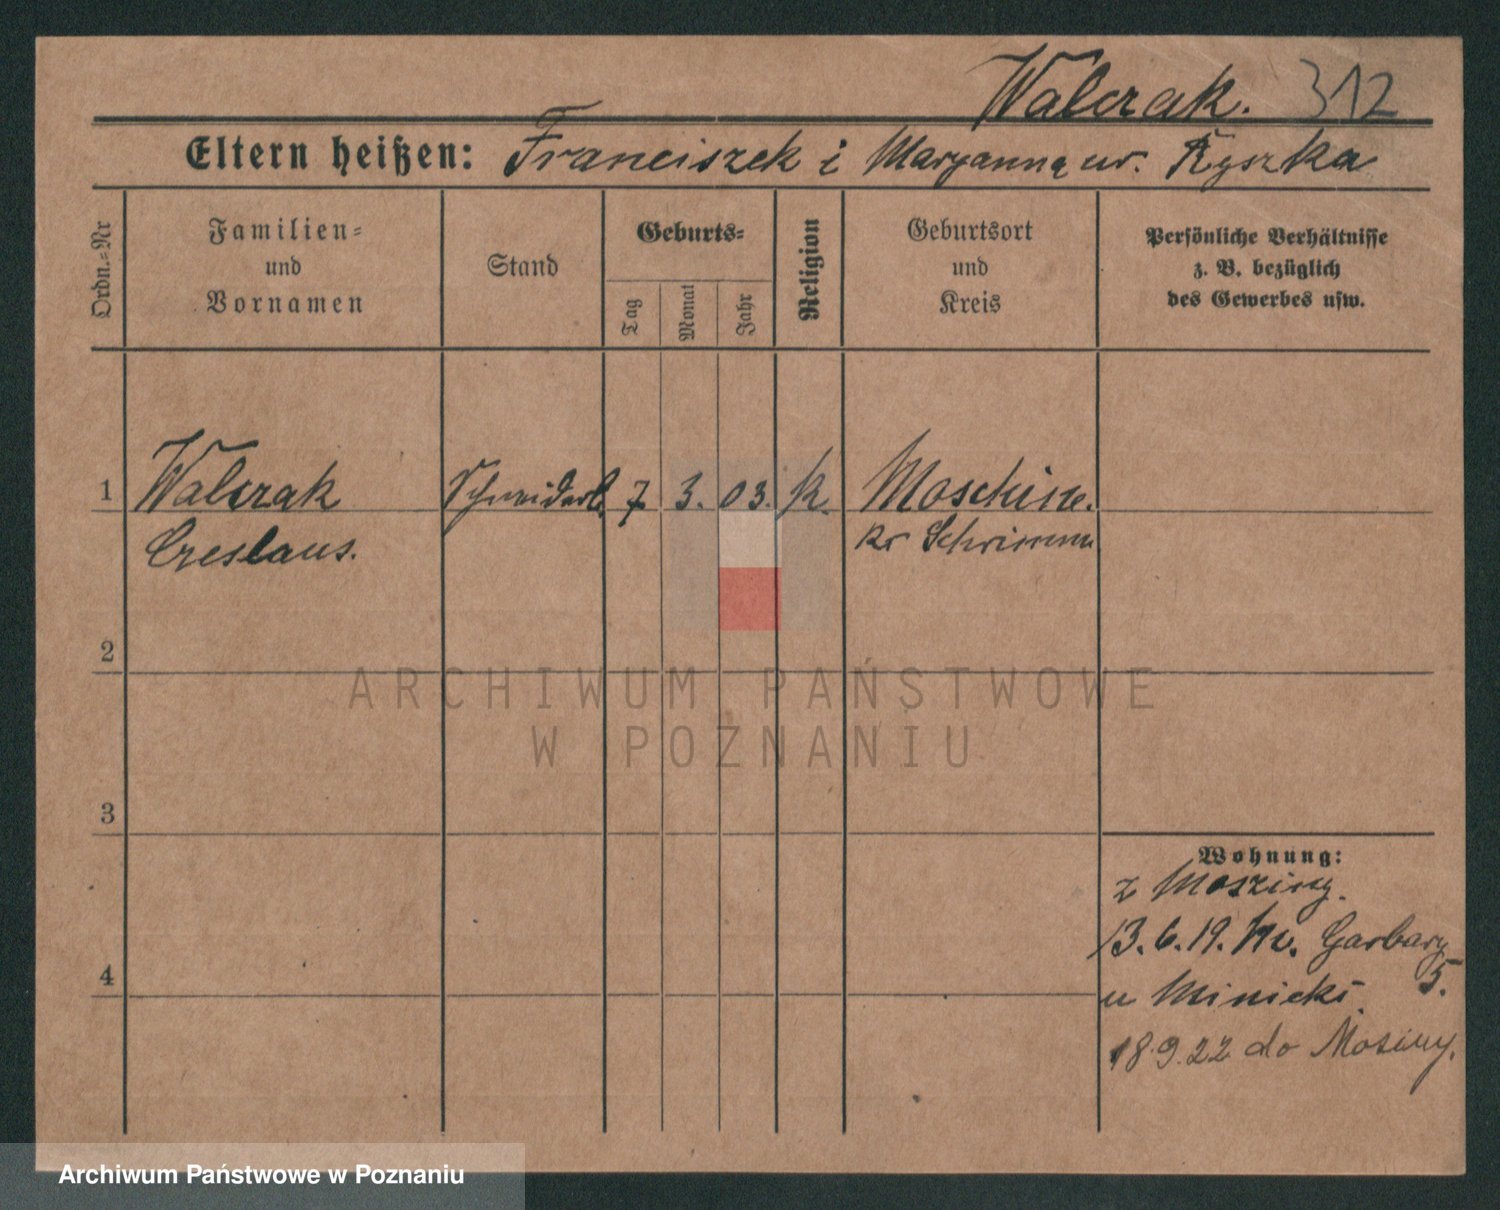 Walczak. 312
Eltern heißen: Franciszek i Maryanna ur. Ryszka
Ordn.=Nr
Familien=
und
Vornamen
Stand
Geburts=
Tag
Monat
Jahr
Religion
Geburtsort
und
Kreis
Persönliche Verhältnisse
z. B. bezüglich
des Gewerbes usw.
1 Walczak Schneiderl. 7 3. 03. K. Moschin.
Czeslaus. Kr Schrimm
2
ARCHIWUM PAŃSTWOWE
W POZNANIU
3
Wohnung:
z Mosziny.
13.6.19. Garbary
5.
4
u Minicki
18.9.22 do Mosiny.
Archiwum Państwowe w Poznaniu